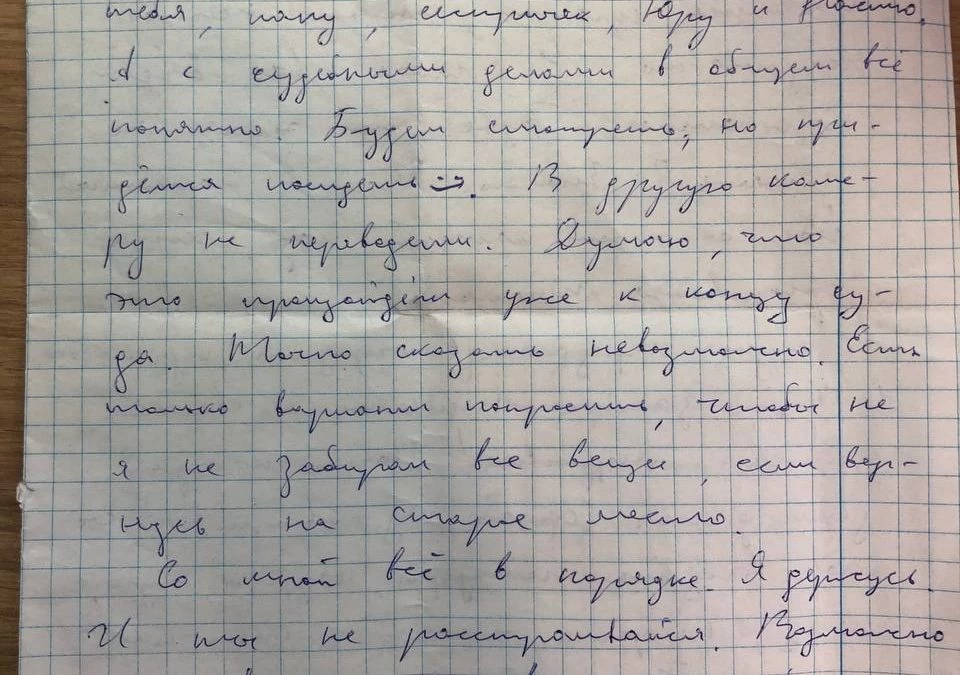 тебя, папу, сестричек, Юру и Настю.
А с судебными делами в общем всё
понятно. Будем смотреть, но при-
дётся посидеть :-).  В другую каме-
ру не переведут. Думаю, что
это произойдёт уже к концу су-
да. Точно сказать невозможно. Есть
только вариант попросить, чтобы не
я не забирал все вещи, если вер-
нусь на старое место.
Со мной всё в порядке. Я держусь.
И ты не расстраивайся. Возможно